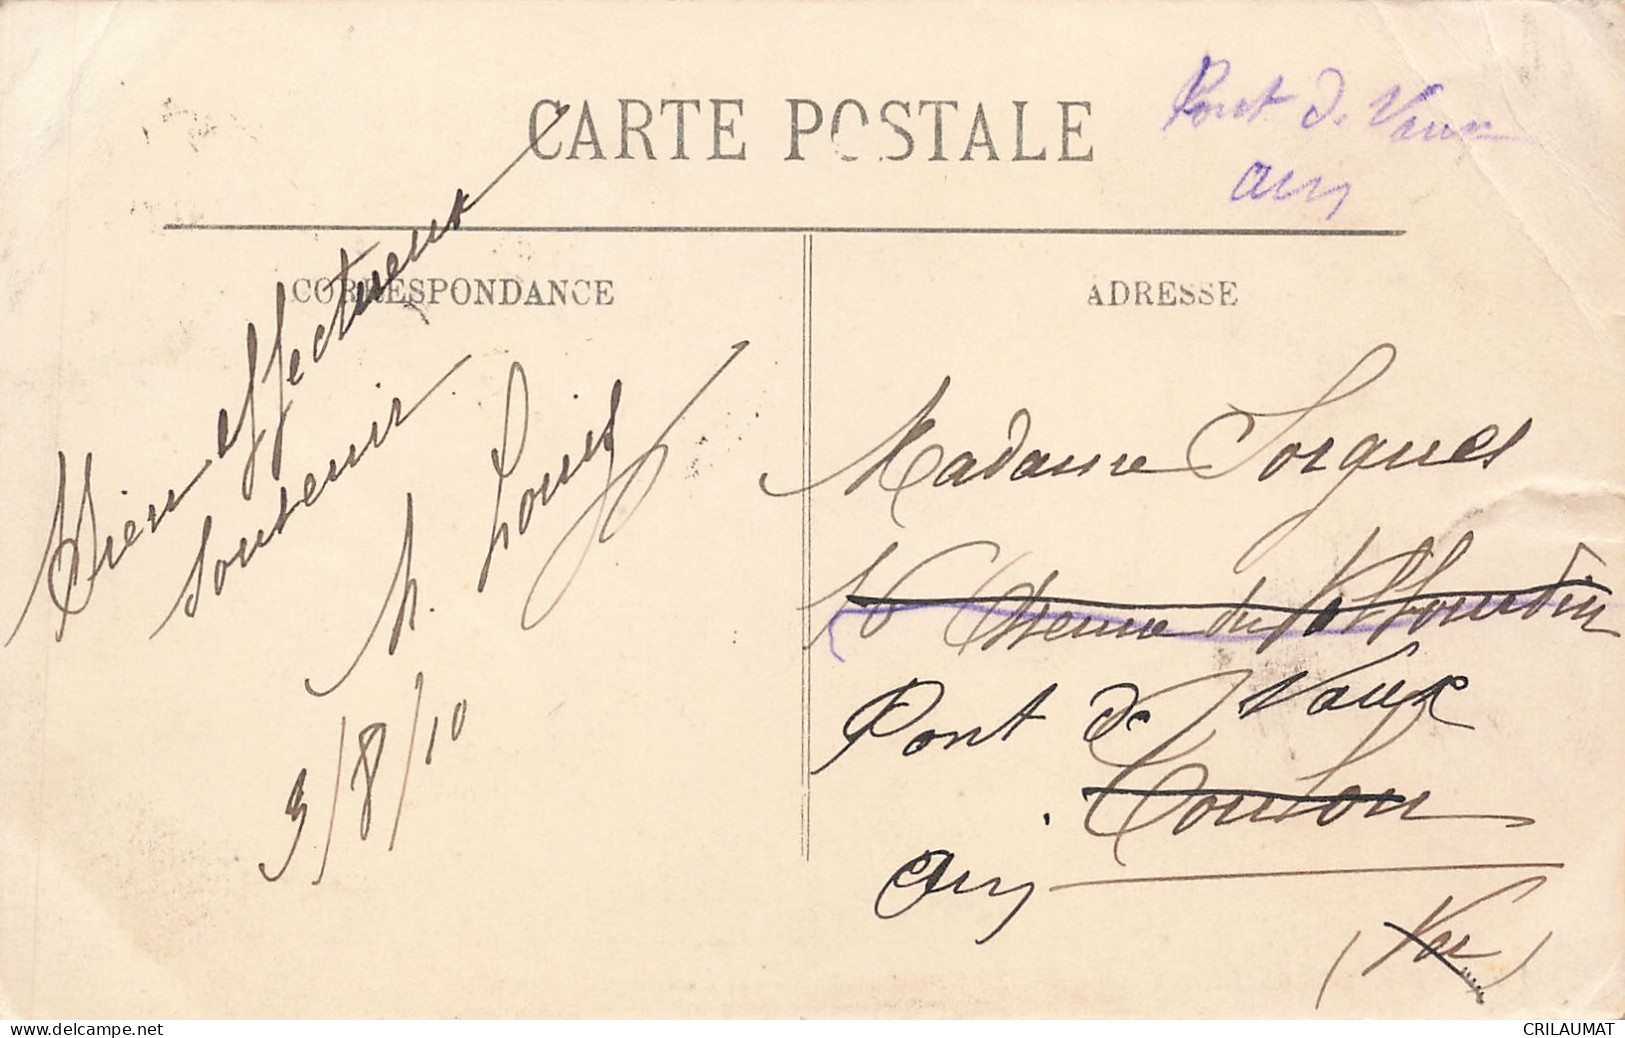 CARTE POSTALE
Pont de Vaux
Ain
CORRESPONDANCE
ADRESSE
Bien affectueux
souvenir
h. Louis
3/8/10
Madame Sorgues
16 du
Pont de Vaux
Toulon
Ain
(Var)
CRILAUMAT